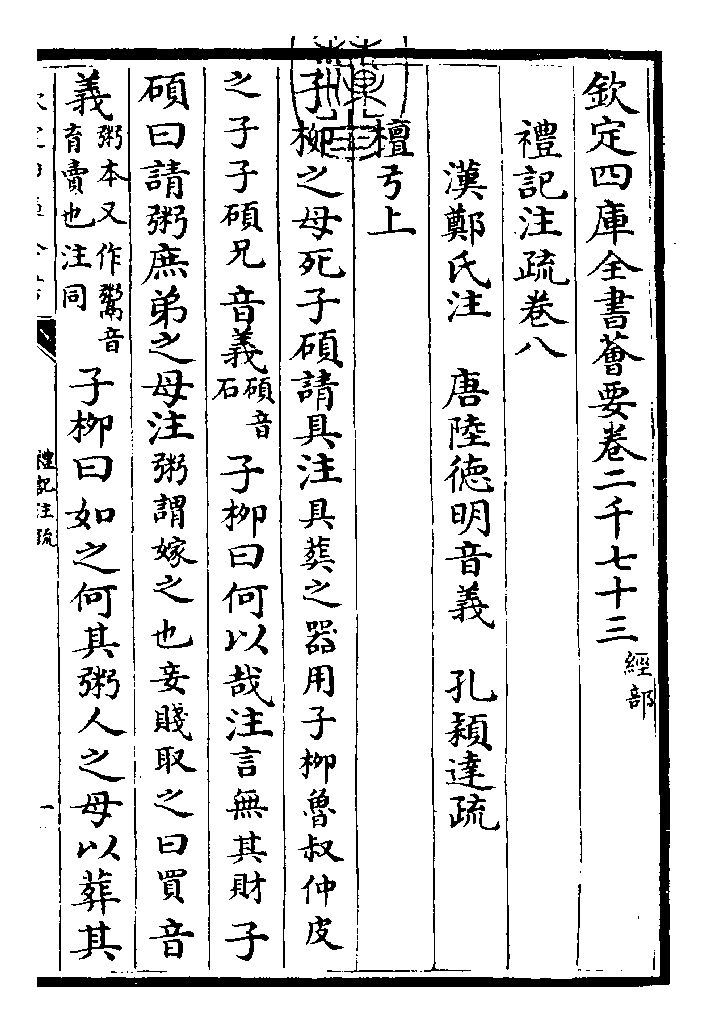 欽定四庫全書薈要卷二千七十三 經部
禮記注疏卷八
漢鄭氏注 唐陸德明音義 孔穎達疏
檀弓上
子柳之母死子碩請具注具葬之器用子柳魯叔仲皮
之子子碩兄音義碩音石子柳曰何以哉注言無其財子
碩曰請粥庶弟之母注粥謂嫁之也妾賤取之曰買音
義粥本又作鬻音育賣也注同子柳曰如之何其粥人之母以葬其
禮記注疏
一